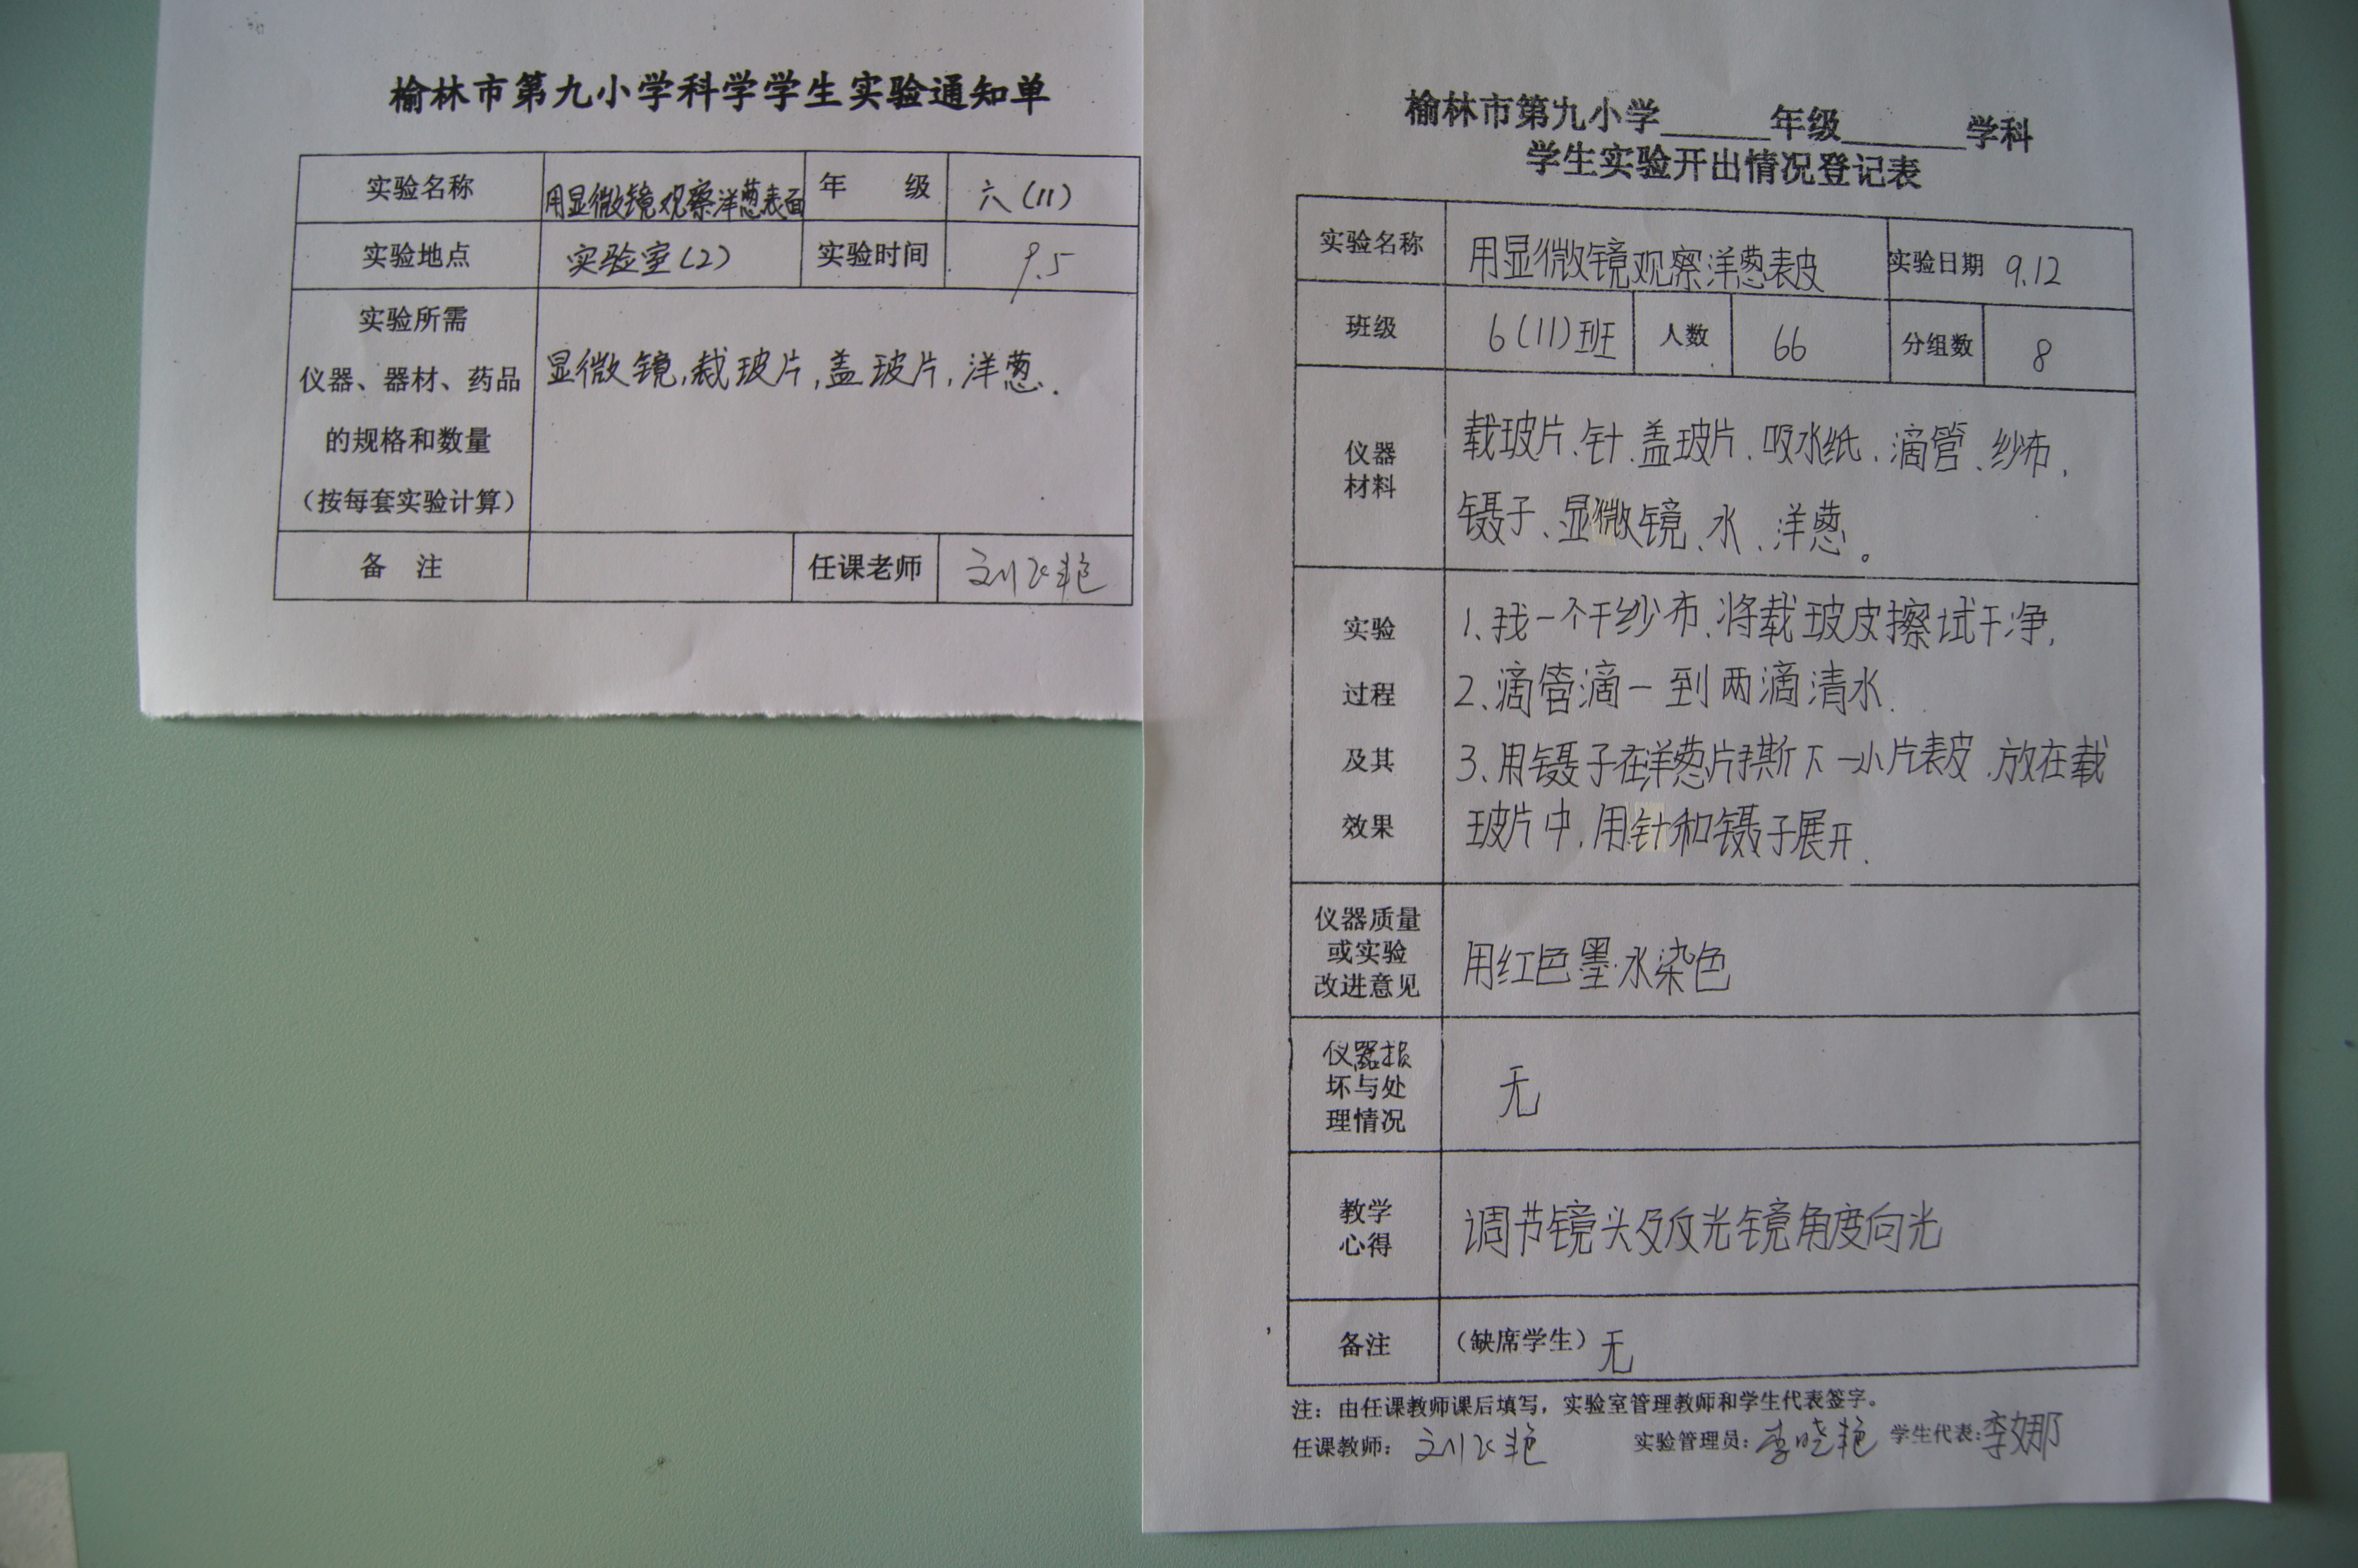 榆林市第九小学科学学生实验通知单
实验名称 用显微镜观察洋葱表面 年 级 六(11)
实验地点 实验室(2) 实验时间 9.5
实验所需
仪器、器材、药品
的规格和数量
(按每套实验计算)
显微镜,裁玻片,盖玻片,洋葱.
备 注 任课老师 刘飞艳
榆林市第九小学______年级______学科
学生实验开出情况登记表
实验名称 用显微镜观察洋葱表皮 实验日期 9.12
班级 6(11)班 人数 66 分组数 8
仪器
材料
载玻片、针、盖玻片、吸水纸、滴管、纱布,
镊子、显微镜、水、洋葱。
实验
过程
及其
效果
1、找一个干纱布、将载玻皮擦试干净,
2、滴管滴一到两滴清水.
3、用镊子在洋葱片撕下一小片表皮.放在载
玻片中,用针和镊子展开.
仪器质量
或实验
改进意见
用红色墨水染色
仪器损
坏与处
理情况
无
教学
心得
调节镜头及反光镜角度向光
备注 (缺席学生) 无
注:由任课教师课后填写,实验室管理教师和学生代表签字。
任课教师: 刘飞艳 实验管理员: 李晓艳 学生代表: 李娜